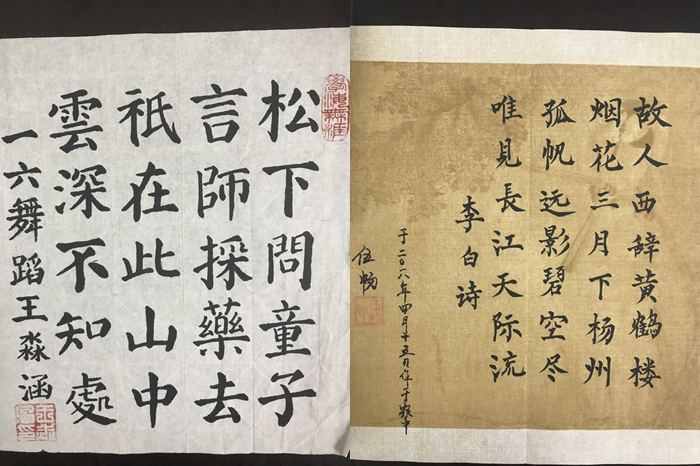 學海無涯
松下問童子
言師採藥去
祇在此山中
雲深不知處
一六舞蹈王淼涵
故人西辞黄鹤楼
烟花三月下杨州
孤帆远影碧空尽
唯見長江天际流
李白诗
于二〇一八年四月十五日作于
伍畅